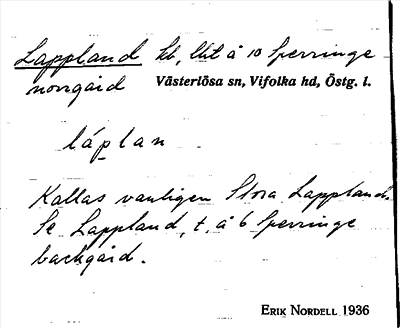 Lappland ht, lht å 10 Sperringe
norrgård Västerlösa sn, Vifolka hd, Östg. l.
láplan
Kallas vanligen Stora Lappland.
Se Lappland, t. å 6 Sperringe
backgård.
ERIK NORDELL 1936